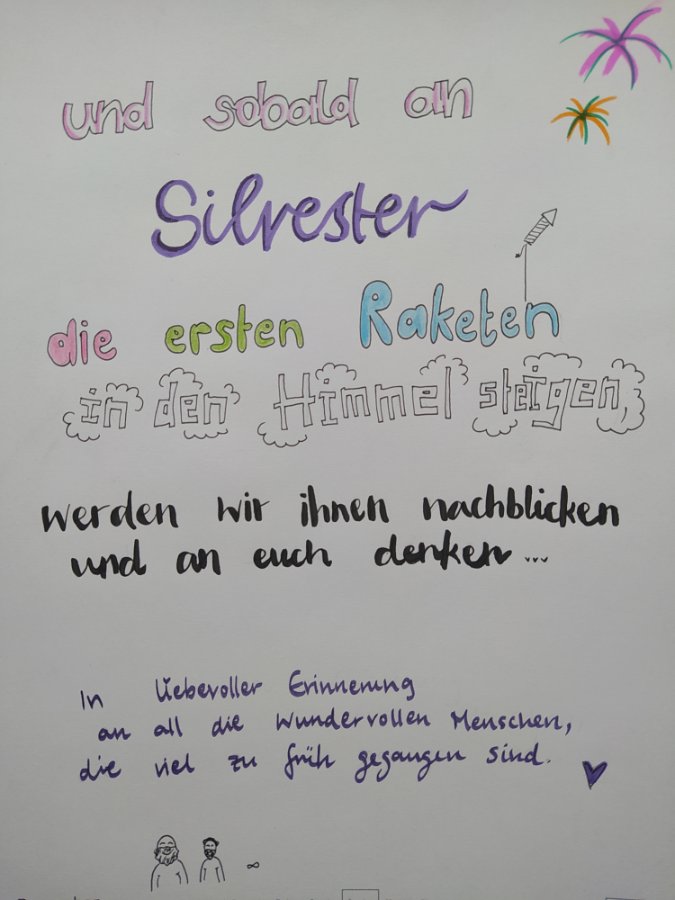 und sobald an
Silvester
die ersten Raketen
in den Himmel steigen,
werden wir ihnen nachblicken
und an euch denken...
In liebevoller Erinnerung
an all die wundervollen Menschen,
die viel zu früh gegangen sind.